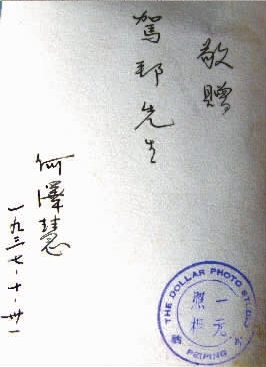 敬贈
駕邦先生
何澤慧
一九三七·十·卅一
THE DOLLAR PHOTO STUDIO
一元
照相
PEIPING